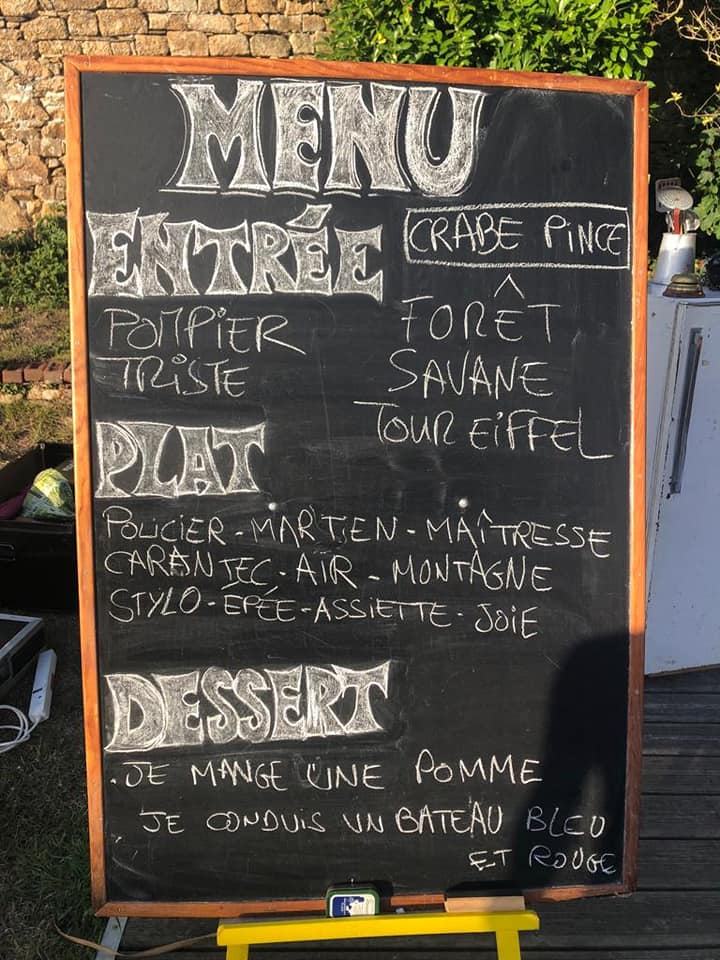 MENU
ENTRÉE
CRABE PINCE
POMPIER
TRISTE
FORÊT
SAVANE
TOUR EIFFEL
PLAT
POLICIER - MARTIEN - MAÎTRESSE
CARANTEC - AIR - MONTAGNE
STYLO - ÉPÉE - ASSIETTE - JOIE
DESSERT
. JE MANGE UNE POMME
JE CONDUIS UN BATEAU BLEU
ET ROUGE